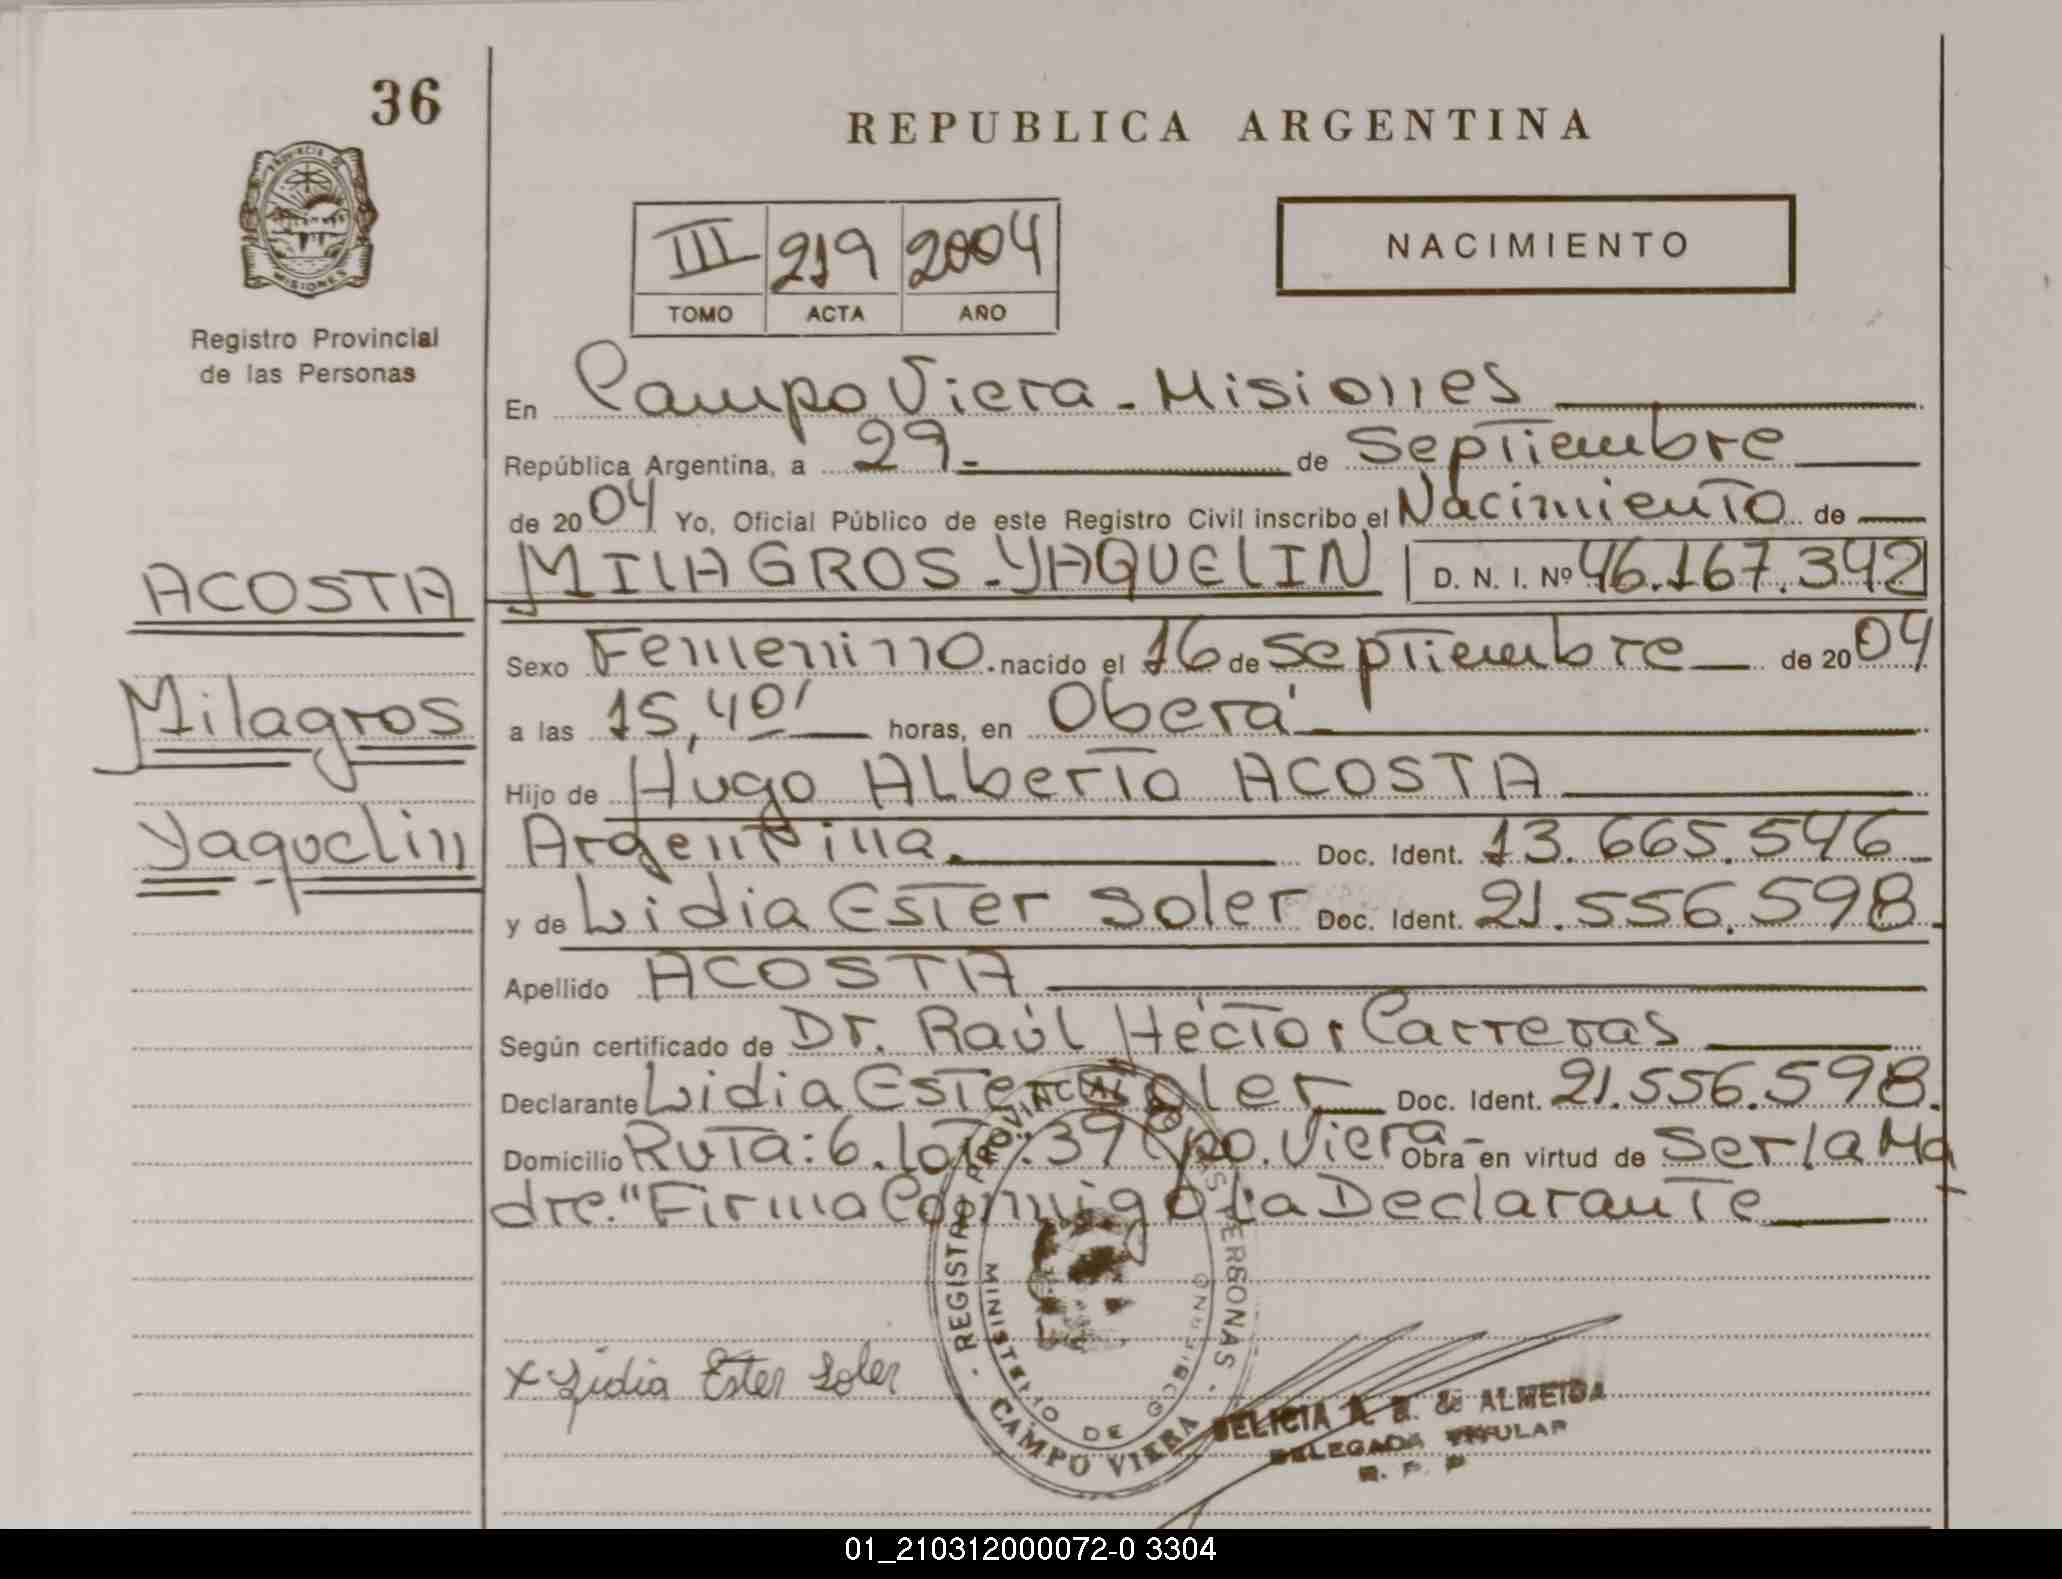 36
REPUBLICA ARGENTINA
PROVINCIA DE
MISIONES
Registro Provincial
de las Personas
III 219 2004
TOMO ACTA AÑO
NACIMIENTO
En Campo Viera - Misiones
República Argentina, a 29.- de Septiembre
de 2004 Yo, Oficial Público de este Registro Civil inscribo el Nacimiento de
ACOSTA
MILAGROS YAQUELIN D. N. I. Nº 46.167.342
Sexo Femenino. nacido el 16 de Septiembre de 2004
Milagros
a las 15,40' horas, en Oberá
Hijo de Hugo Alberto ACOSTA
Yaquelin
Argentina. Doc. Ident. 13.665.546
y de Lidia Ester Soler Doc. Ident. 21.556.598.
Apellido ACOSTA
Según certificado de Dr. Raúl Héctor Carreras
Declarante Lidia Ester Soler Doc. Ident. 21.556.598.
Domicilio Ruta: 6. Lot: 39 Cpo. Viera - Obra en virtud de Ser la Ma
dre." Firma Conmigo La Declarante
REGISTRO PROVINCIAL DE LAS PERSONAS
MINISTERIO DE GOBIERNO
CAMPO VIERA
x Lidia Ester Soler
DELICIA A. B. de ALMEIDA
DELEGADA TITULAR
R. P. P.
01_210312000072-0 3304